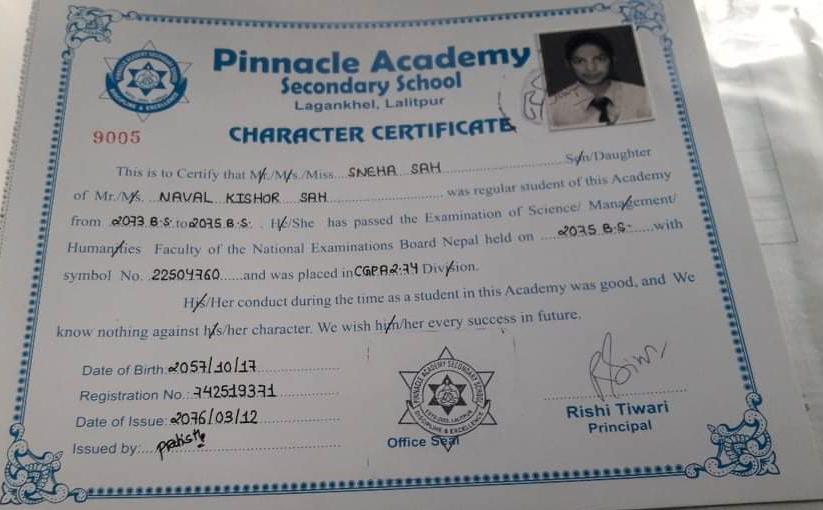 Pinnacle Academy
Secondary School
Lagankhel, Lalitpur
9005
CHARACTER CERTIFICATE
This is to Certify that Mr./Ms./Miss...SNEHA SAH...Son/Daughter
of Mr./Ms. NAVAL KISHOR SAH...was regular student of this Academy
from 2073 B.S. to 2075 B.S. . He/She has passed the Examination of Science/ Management/
Humanities Faculty of the National Examinations Board Nepal held on ...2075 B.S....with
symbol No. 22504760......and was placed in CGPA 2.74 Division.
His/Her conduct during the time as a student in this Academy was good, and We
know nothing against his/her character. We wish him/her every success in future.
Date of Birth: 2057/10/17
Registration No.: 742519371
Date of Issue: 2076/03/12
Issued by:
PINNACLE ACADEMY SECONDARY SCHOOL
DISCIPLINE & EXCELLENCE
Office Seal
Rishi Tiwari
Principal